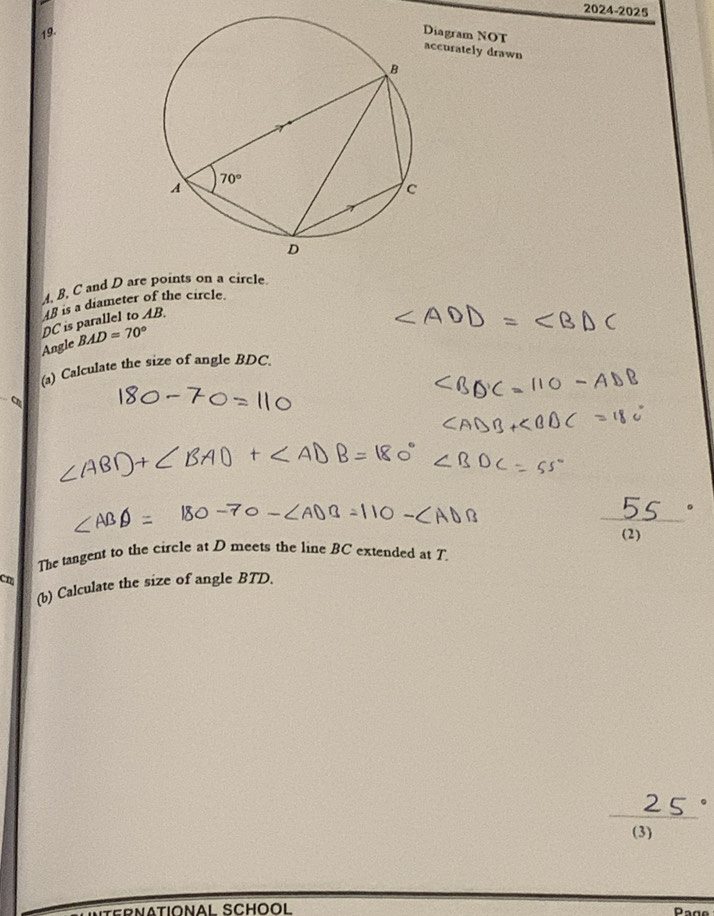 2024-2025
19.
Diagram NOT
accurately drawn
B
70°
A
C
D
A, B, C and D are points on a circle.
AB is a diameter of the circle.
DC is parallel to AB.
Angle BAD = 70°
∠ADD = ∠BDC
(a) Calculate the size of angle BDC.
180-70=110
∠BDC = 110 - ADB
∠ADB+∠BDC = 180°
∠ABD + ∠BAD + ∠ADB = 180°
∠BDC = 55°
∠ABD = 180-70-∠ADB=110-∠ADB
55°
(2)
The tangent to the circle at D meets the line BC extended at T.
cm
(b) Calculate the size of angle BTD.
25°
(3)
INTERNATIONAL SCHOOL
Page